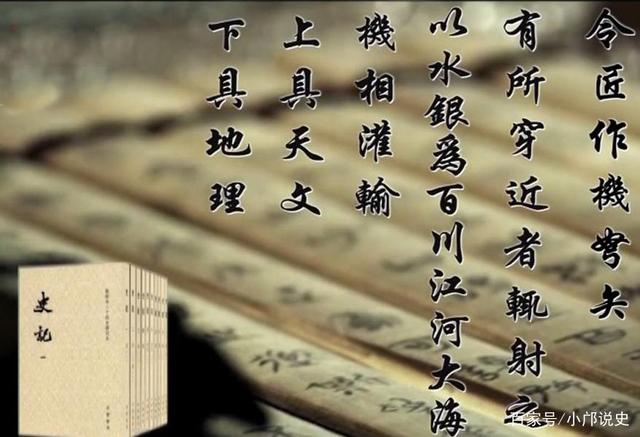 令匠作機弩矢
有所穿近者輒射之
以水銀為百川江河大海
機相灌輸
上具天文
下具地理
史記
一
百家号/小邝说史